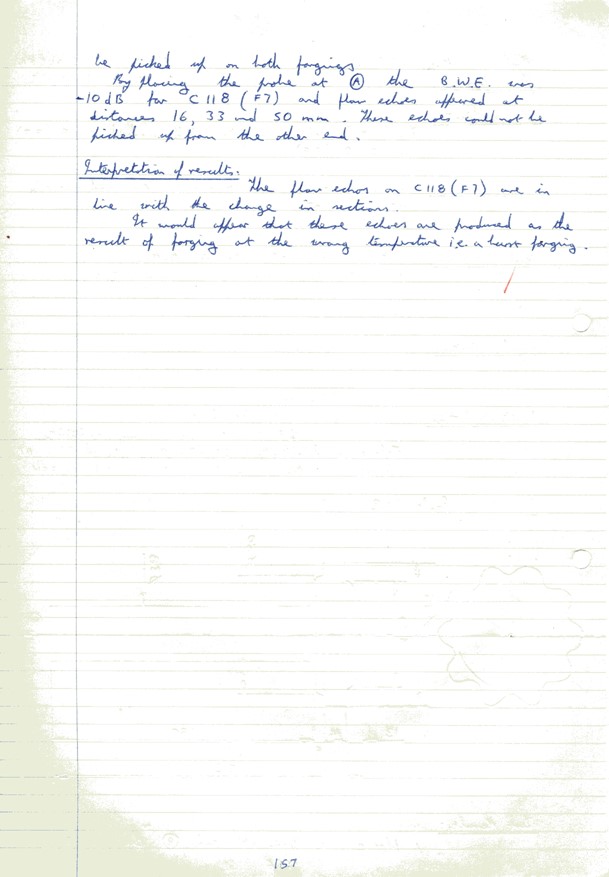 be picked up on both forgings
By placing the probe at Ⓐ the B.W.E. was
-10dB for C118 (F7) and flaw echoes appeared at
distances 16, 33 and 50 mm. These echoes could not be
picked up from the other end.
Interpretation of results:
The flaw echos on C118 (F7) are in
line with the change in sections.
It would appear that these echoes are produced as the
result of forging at the wrong temperature i.e. a burst forging.
157